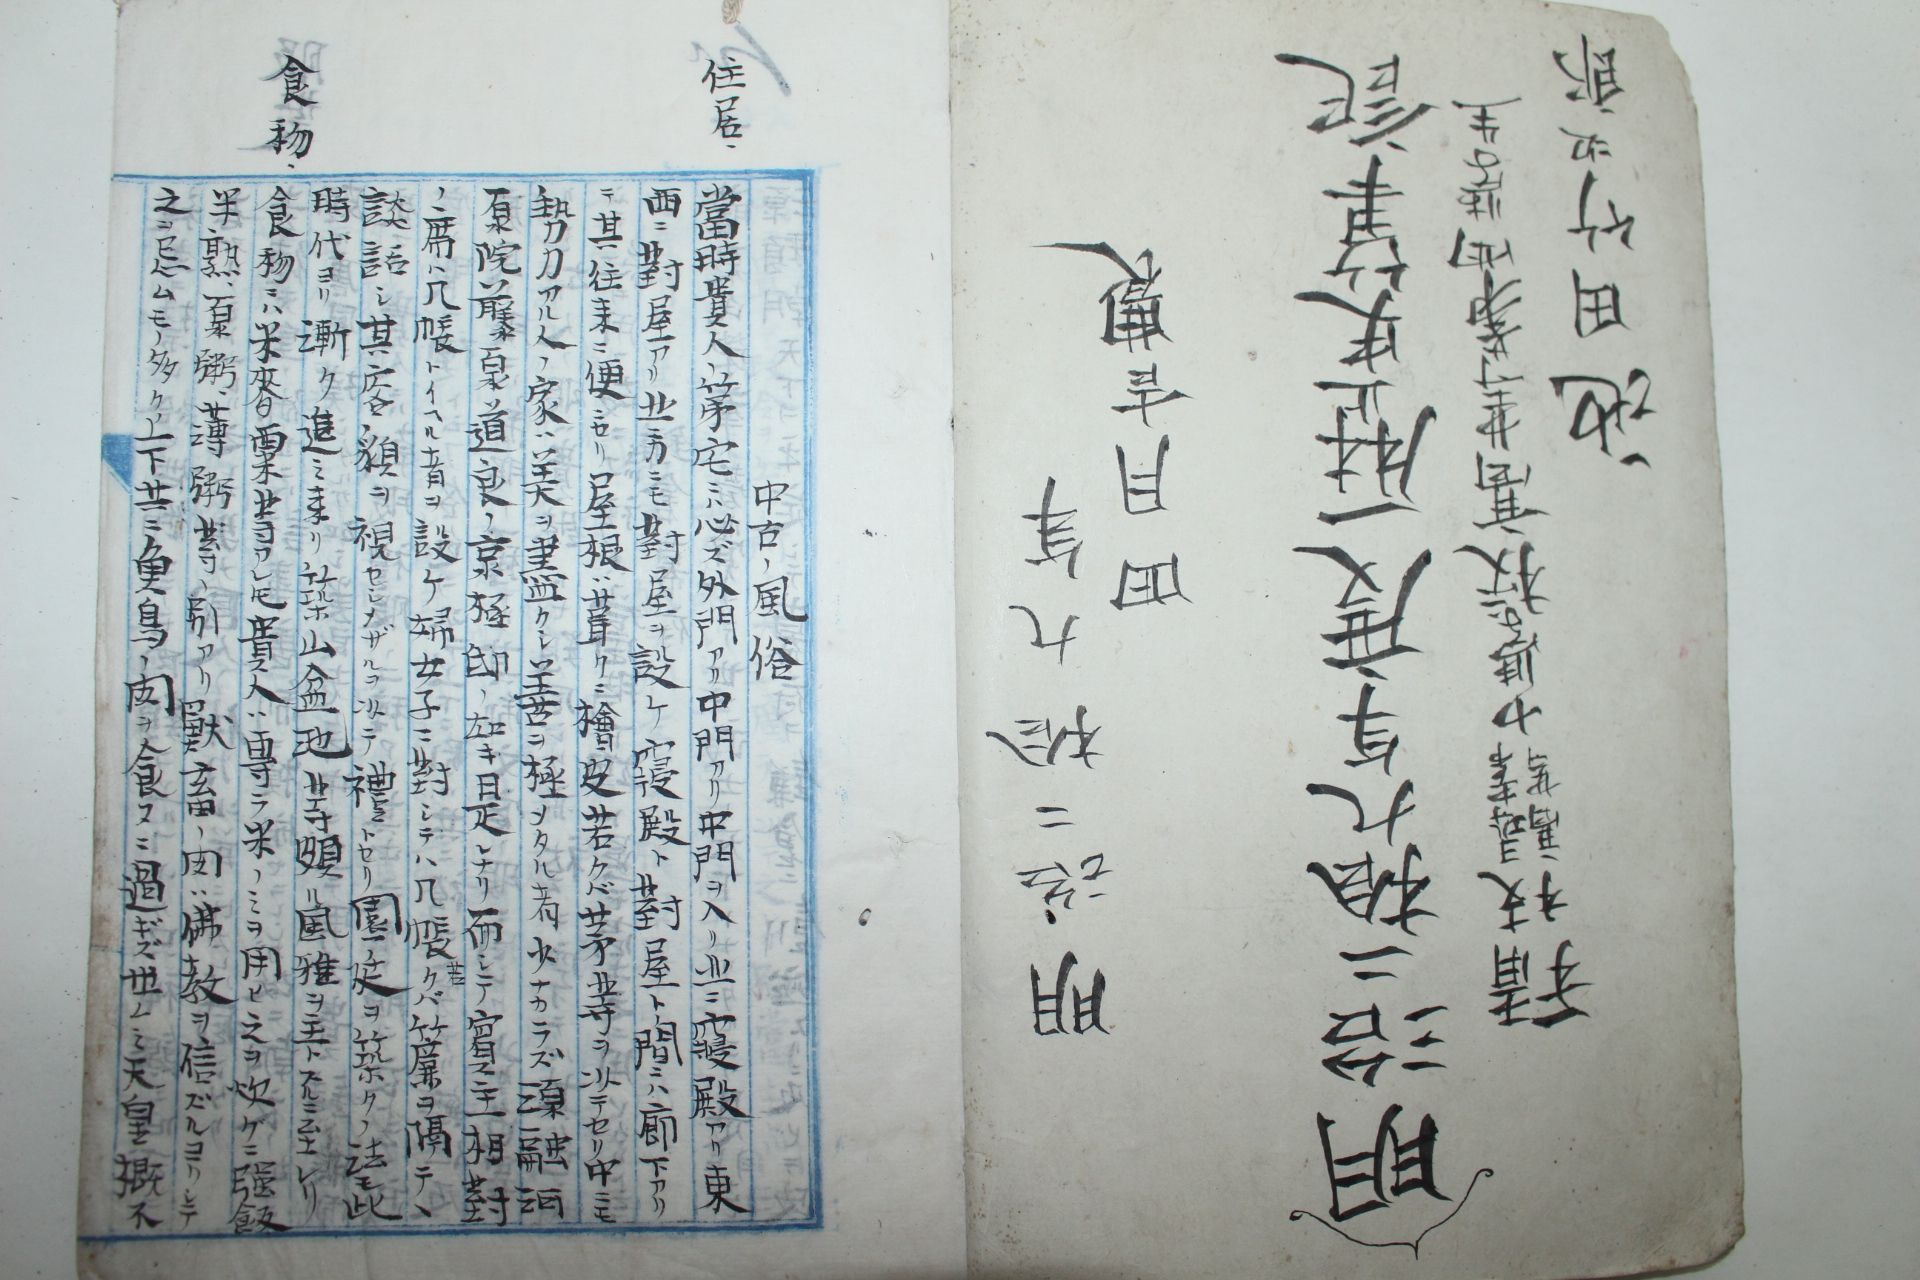 明治二拾九年
四月吉晨
明治二拾九年度歴史筆記
尋常高等小學校高等
池田竹次郎
中古ノ風俗
住居、
當時貴人ノ第宅ニハ必ズ外門アリ中門アリ中門ヲ入リ北ニ寝殿アリ東
西ニ對屋アリ北ノ方ニモ對屋ヲ設ケ寝殿ト對屋ト間ニハ廊下アリ
テ其往来ニ便ニセリ屋根ハ葺クニ檜皮若クバ茅等ヲ以テセリ中ニモ
勢力アル人ノ家ハ美ヲ盡クシ善ヲ極メタル者少ナカラズ源融河
原院藤原道良ノ京極邸ノ如キ是レナリ而シテ賓主相對
ノ席ハ几帳トイヘル者ヲ設ケ婦女子ニ對シテハ几帳若クバ簾ヲ隔テヽ
談話シ其容貌ヲ視セシメザルヲ以テ禮トセリ園廷ヲ築クノ法モ此
時代ヨリ漸ク進ミ来リ築山盆池等頗ル風雅ヲ主トスルニ至レリ
食物、
食物ニハ米麥粟等アレ𪜈貴人ハ専ラ米ノミヲ用ヒ之ヲ炊グニ强飯
半熟、粟粥、薄粥等ノ別アリ獣畜ノ肉ハ佛教ヲ信ズルヨリシテ
之ニ忌ムモノ多ク上下共ニ魚鳥ノ肉ヲ食フニ過ギズ世ムミ天皇概不